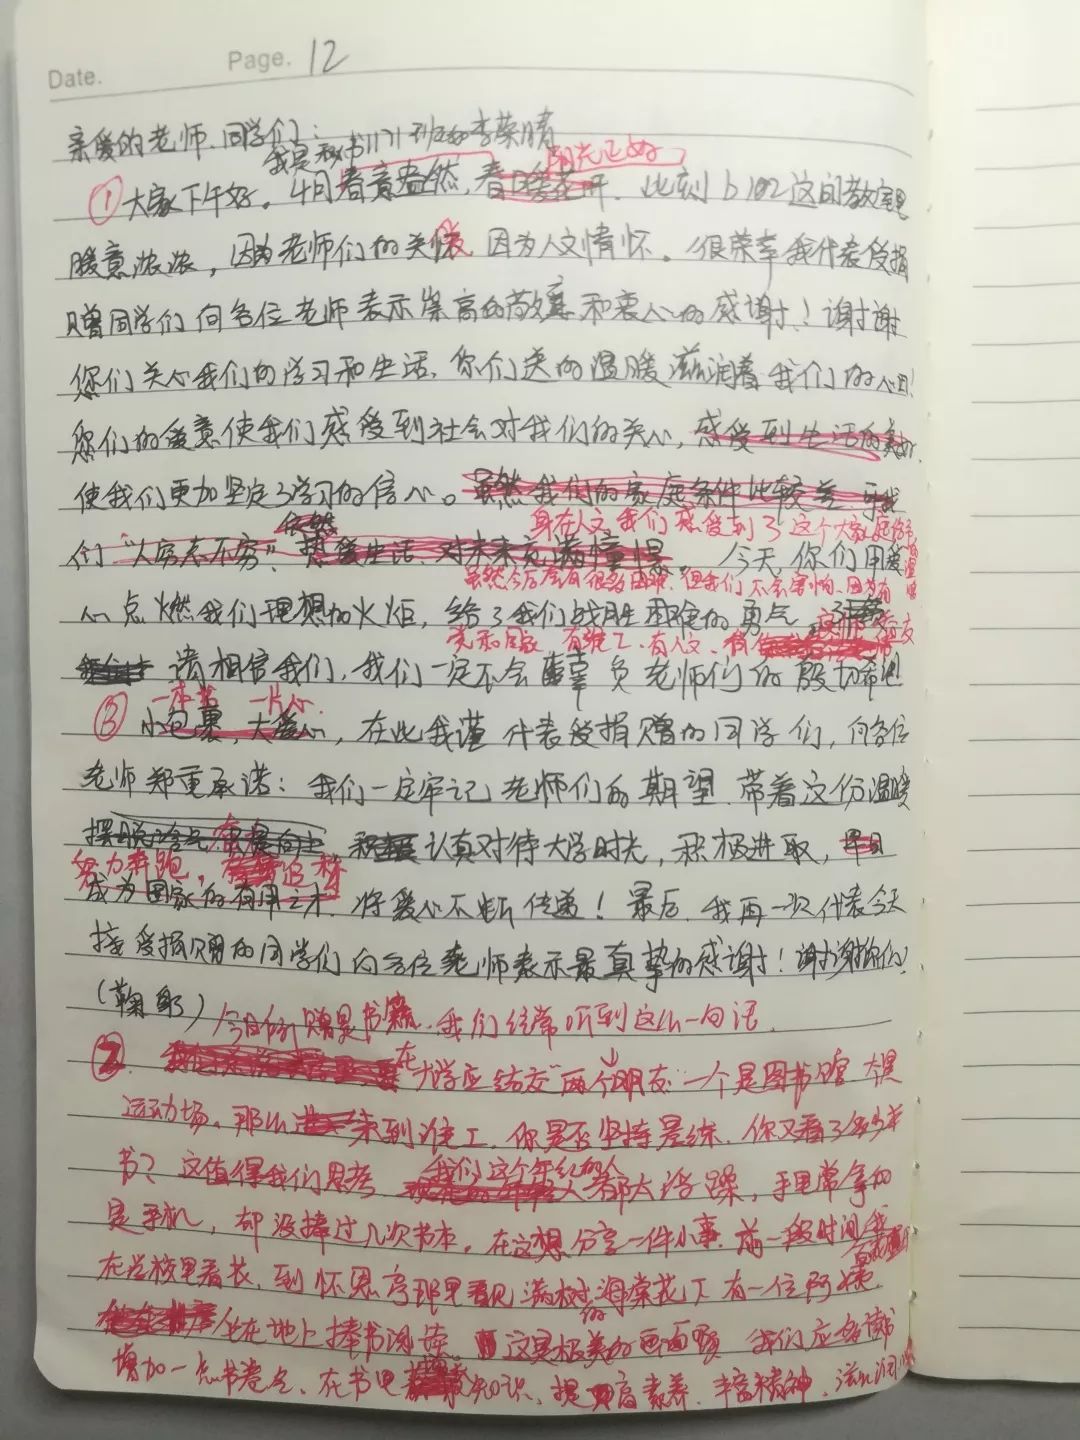 Date.
Page. 12
亲爱的老师、同学们:
我是秘书1171班的李荣晴
阳光正好
①大家下午好。4月春意盎然,春暖花开,此刻b102这间教室里
暖意浓浓,因为老师们的关爱,因为人文情怀。很荣幸我代表受捐
赠同学们向各位老师表示崇高的敬意和衷心的感谢!谢谢
你们关心我们的学习和生活,你们送的温暖滋润着我们的心田!
你们的爱意使我们感受到社会对我们的关心,感受到生活的美好
使我们更加坚定了学习的信心。虽然我们的家庭条件比较差,
身在人文,我们感受到了这个大家庭的
依然
们“人穷志不穷”,热爱生活,对未来充满憧憬。今天,你们用爱
虽然今后会有很多困难,但我们不会害怕,因为有
心点燃我们理想的火炬,给了我们战胜困难的勇气。
党和国家,有雅工,有人文,
请相信我们,我们一定不会辜负老师们的殷切希望
一本书 一片心
③小包裹,大爱心,在此我谨代表受捐赠的同学们,向各位
老师郑重承诺:我们一定牢记老师们的期望,带着这份温暖
认真对待大学时光,积极进取,早日
努力奔跑,追梦
成为国家的有用之才,将爱心不断传递!最后,我再一次代表今天
接受捐赠的同学们向各位老师表示最真挚的感谢!谢谢你们!
(鞠躬)
今日所赠是书籍,我们经常听到这么一句话,
②在大学应结交“两个朋友”一个是图书馆
运动场。那么来到雅工,你是否坚持晨练,你又看了多少本
书?这值得我们思考
我们这个年纪的人都太浮躁,手里常拿的
是手机,却没捧过几次书本。在这想分享一件小事,前一段时间我
在学校里看花,到怀恩亭那里看见满树的海棠花下有一位阿姨
坐在地上捧书阅读。这是极美的画面,我们应多读书
增加一点书卷气,在书里知识,提高素养,丰富精神,滋润